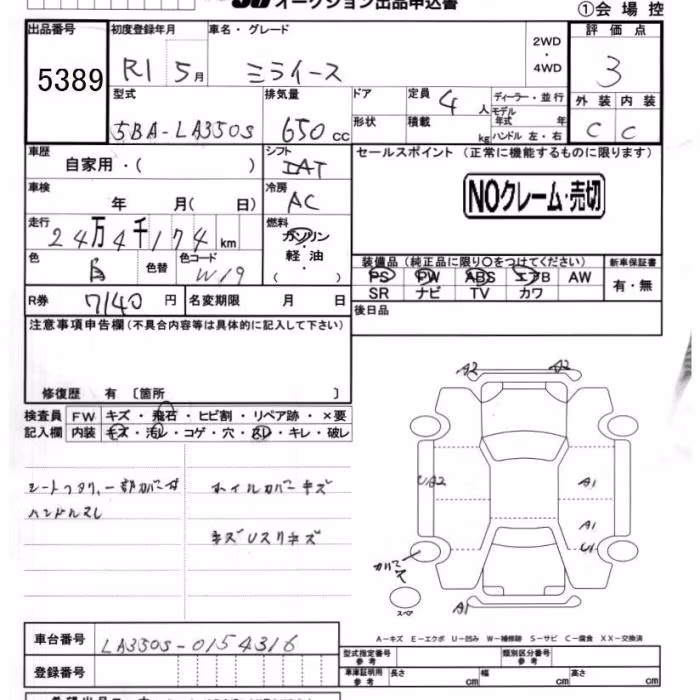 オークション出品申込書
①会場控
出品番号 初度登録年月 車名・グレード 2WD・4WD 評価点
5389 R1 5月 ミライース 3
型式 排気量 ドア 定員 4人 ディーラー・並行 外装 内装
5BA-LA350S 650cc 形状 積載 kg モデル年式 年 ハンドル 左・右 C C
車歴 自家用・( ) シフト IAT セールスポイント (正常に機能するものに限ります)
車検 年 月( 日) 冷房 AC NOクレーム・売切
走行 24万4千174km 燃料 ガソリン・軽油 ( )
色 白 色替 色コード W19 装備品(純正品に限り〇をつけてください) 新車保証書
PS PW ABS エアB AW 有・無
SR ナビ TV カワ
R券 7140円 名変期限 月 日 後日品
注意事項申告欄(不具合内容等は具体的に記入して下さい)
修復歴 有 〔箇所 〕
検査員 FW キズ・飛石・ヒビ割・リペア跡・×要
記入欄 内装 キズ・汚レ・コゲ・穴・スレ・キレ・破レ
ハンドルスレ
ホイルカバーキズ
A2 A2
UA2 A1
A1
U1
カバーキズ
スペア
A1
A-キズ E-エクボ U-凹み W-補修跡 S-サビ C-腐食 XX-交換済
車台番号 LA350S-0154316
型式指定番号 参考 類別区分番号 参考
登録番号 車庫証明用 参考 長さ cm 幅 cm 高さ cm